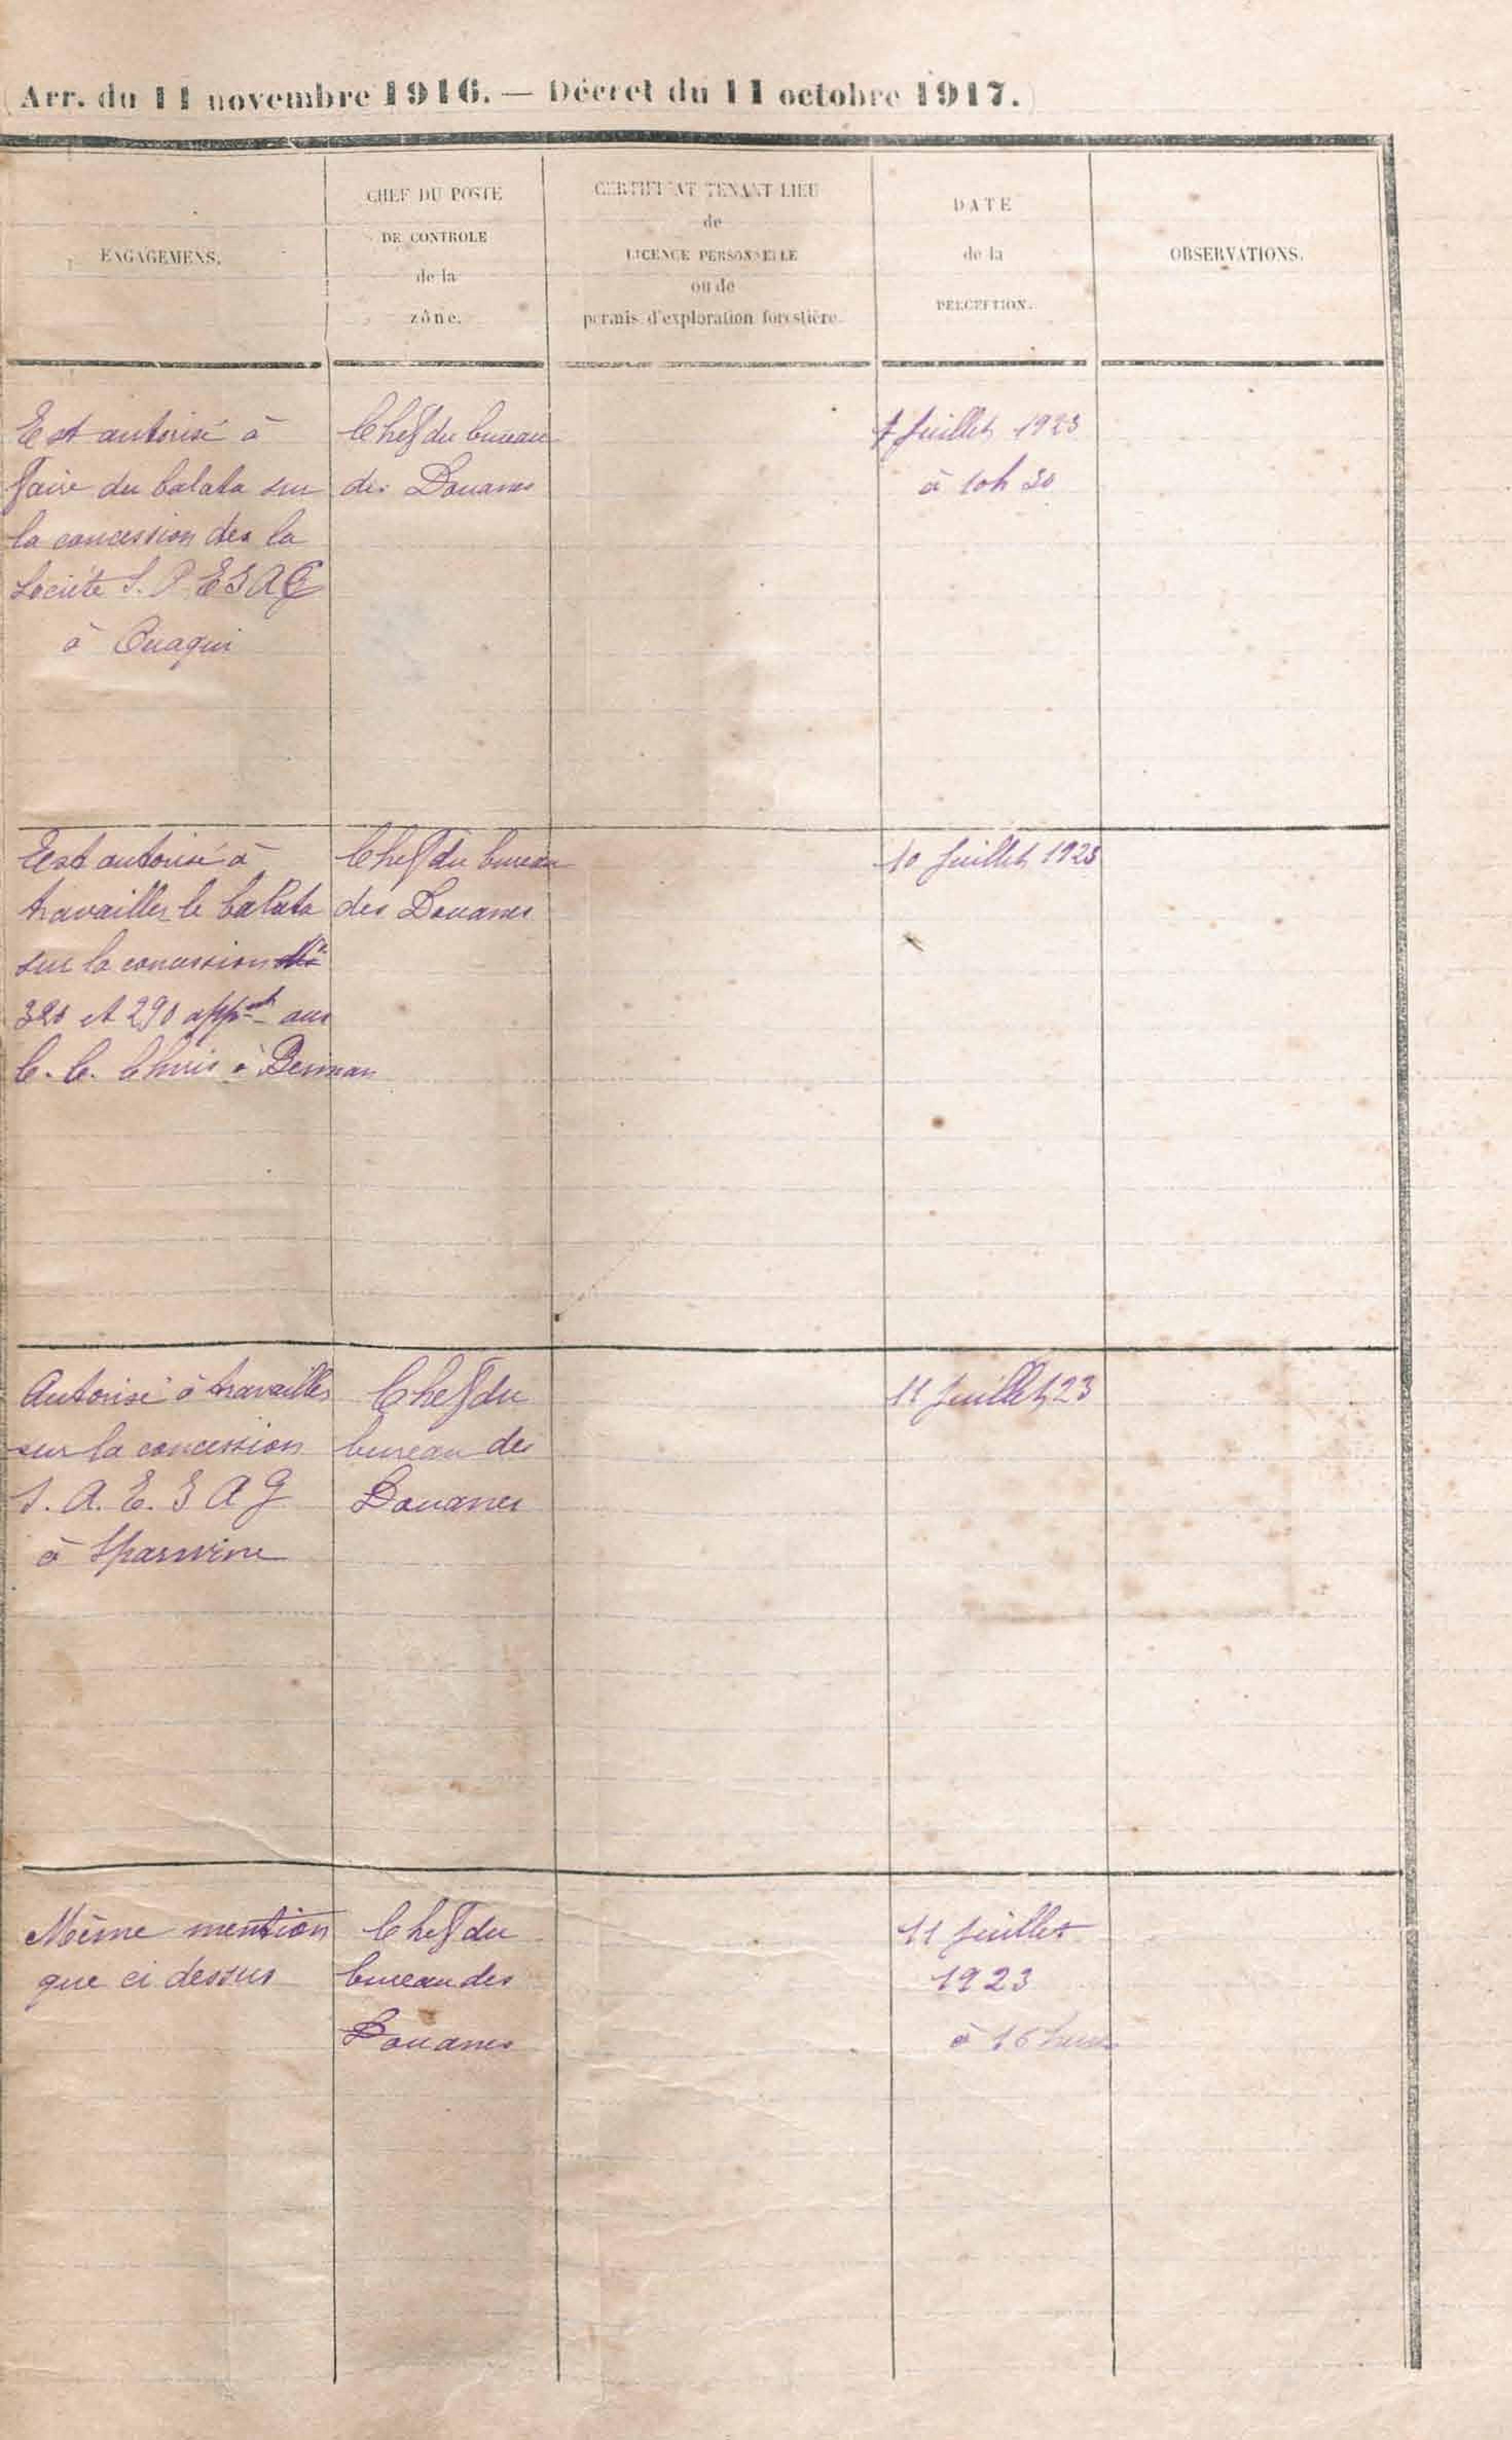 Arr. du 11 novembre 1916. — Décret du 11 octobre 1917.
ENGAGEMENS.
CHEF DU POSTE
DE CONTROLE
de la
zône.
CERTIFICAT TENANT LIEU
de
LICENCE PERSONNELLE
ou de
permis d'exploration forestière.
DATE
de la
PERCEPTION.
OBSERVATIONS.
Est autorisé à
faire du balata sur
la concession des la
Société S. P. E S A G
à Ouaqui
Chef du bureau
des Douanes
7 Juillet 1923
à 10h 30
Est autorisé à
travailler le balata
sur la concession
320 et 290 appnt aux
C. C. Chris à Beiman
Chef du bureau
des Douanes
10 Juillet 1923
Autorisé à travailler
sur la concession
S. A. E. S A G
à Sparwine
Chef du
bureau des
Douanes
11 Juillet 23
Même mention
que ci dessus
Chef du
bureau des
Douanes
11 Juillet
1923
à 16 heures